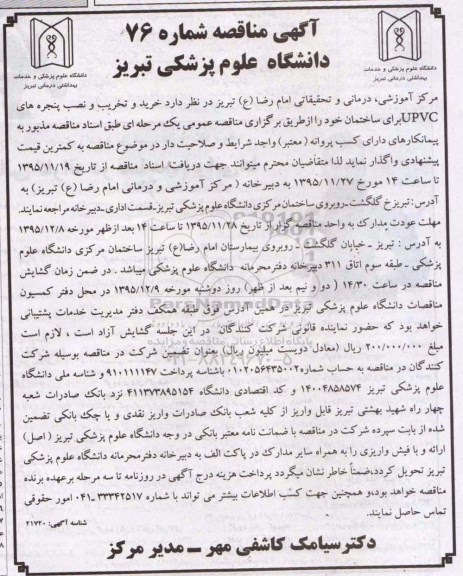 آگهی مناقصه شماره ۷۶
دانشگاه علوم پزشکی تبریز
دانشگاه علوم پزشکی و خدمات
بهداشتی درمانی تبریز
دانشگاه علوم پزشکی و خدمات
بهداشتی درمانی تبریز
مرکز آموزشی، درمانی و تحقیقاتی امام رضا (ع) تبریز در نظر دارد خرید و تخریب و نصب پنجره های
UPVC برای ساختمان خود را از طریق برگزاری مناقصه عمومی یک مرحله ای طبق اسناد مناقصه مذبور به
پیمانکارهای دارای کسب پروانه ( معتبر) واجد شرایط و صلاحیت دار در موضوع مناقصه به کمترین قیمت
پیشنهادی واگذار نماید لذا متقاضیان محترم میتوانند جهت دریافت اسناد مناقصه از تاریخ ۱۳۹۵/۱۱/۱۹
تا ساعت ۱۴ مورخ ۱۳۹۵/۱۱/۲۷ به دبیرخانه ( مرکز آموزشی و درمانی امام رضا (ع) تبریز) به
آدرس : تبریز خ گلگشت - روبروی ساختمان مرکزی دانشگاه علوم پزشکی تبریز - قسمت اداری - دبیرخانه مراجعه نمایند.
مهلت عودت مدارک به واحد مناقصه گزار از تاریخ ۱۳۹۵/۱۱/۲۸ تا ساعت ۱۴ بعد از ظهر مورخه ۱۳۹۵/۱۲/۸
به آدرس : تبریز - خیابان گلگشت - روبروی بیمارستان امام رضا(ع) تبریز ساختمان مرکزی دانشگاه علوم
پزشکی - طبقه سوم اتاق ۳۱۱ دبیرخانه دفتر محرمانه دانشگاه علوم پزشکی میباشد . در ضمن زمان گشایش
مناقصه در ساعت ۱۴/۳۰ ( دو و نیم بعد از ظهر) روز دوشنبه مورخه ۱۳۹۵/۱۲/۹ در محل دفتر کمسیون
مناقصات دانشگاه علوم پزشکی تبریز در همین آدرس فوق طبقه همکف دفتر مدیریت خدمات پشتیبانی
خواهد بود که حضور نماینده قانونی شرکت کنندگان در این جلسه گشایش آزاد است ، لازم است
مبلغ ۲۰۰/۰۰۰/۰۰۰ ریال (معادل دویست میلیون ریال) بعنوان تضمین شرکت در مناقصه بوسیله شرکت
کنندگان در مناقصه به حساب شماره ۰۱۰۲۰۵۶۴۳۵۰۰۲ باشناسه پرداخت ۹۱۰۱۱۱۱۴۷ و شناسه ملی دانشگاه
علوم پزشکی تبریز ۱۴۰۰۴۸۵۸۵۷۴ و کد اقتصادی دانشگاه ۴۱۱۳۷۳۸۹۵۱۵۴ نزد بانک صادرات شعبه
چهار راه شهید بهشتی تبریز قابل واریز از کلیه شعب بانک صادرات واریز نقدی و یا چک بانکی تضمین
شده از بابت سپرده شرکت در مناقصه با ضمانت نامه معتبر بانکی در وجه دانشگاه علوم پزشکی تبریز ( اصل)
ارائه و با فیش واریزی را به همراه سایر مدارک در پاکت الف به دبیرخانه دفتر محرمانه دانشگاه علوم پزشکی
تبریز تحویل گردد، ضمناً خاطر نشان میگردد پرداخت هزینه درج آگهی در روزنامه تا سه مرحله بر عهده برنده
مناقصه خواهد بود، و همچنین جهت کسب اطلاعات بیشتر می تواند با شماره ۳۳۳۴۲۵۱۷ -۰۴۱ امور حقوقی
تماس حاصل نمایند.
شناسه آگهی: ۲۱۷۲۰
دکتر سیامک کاشفی مهر - مدیر مرکز